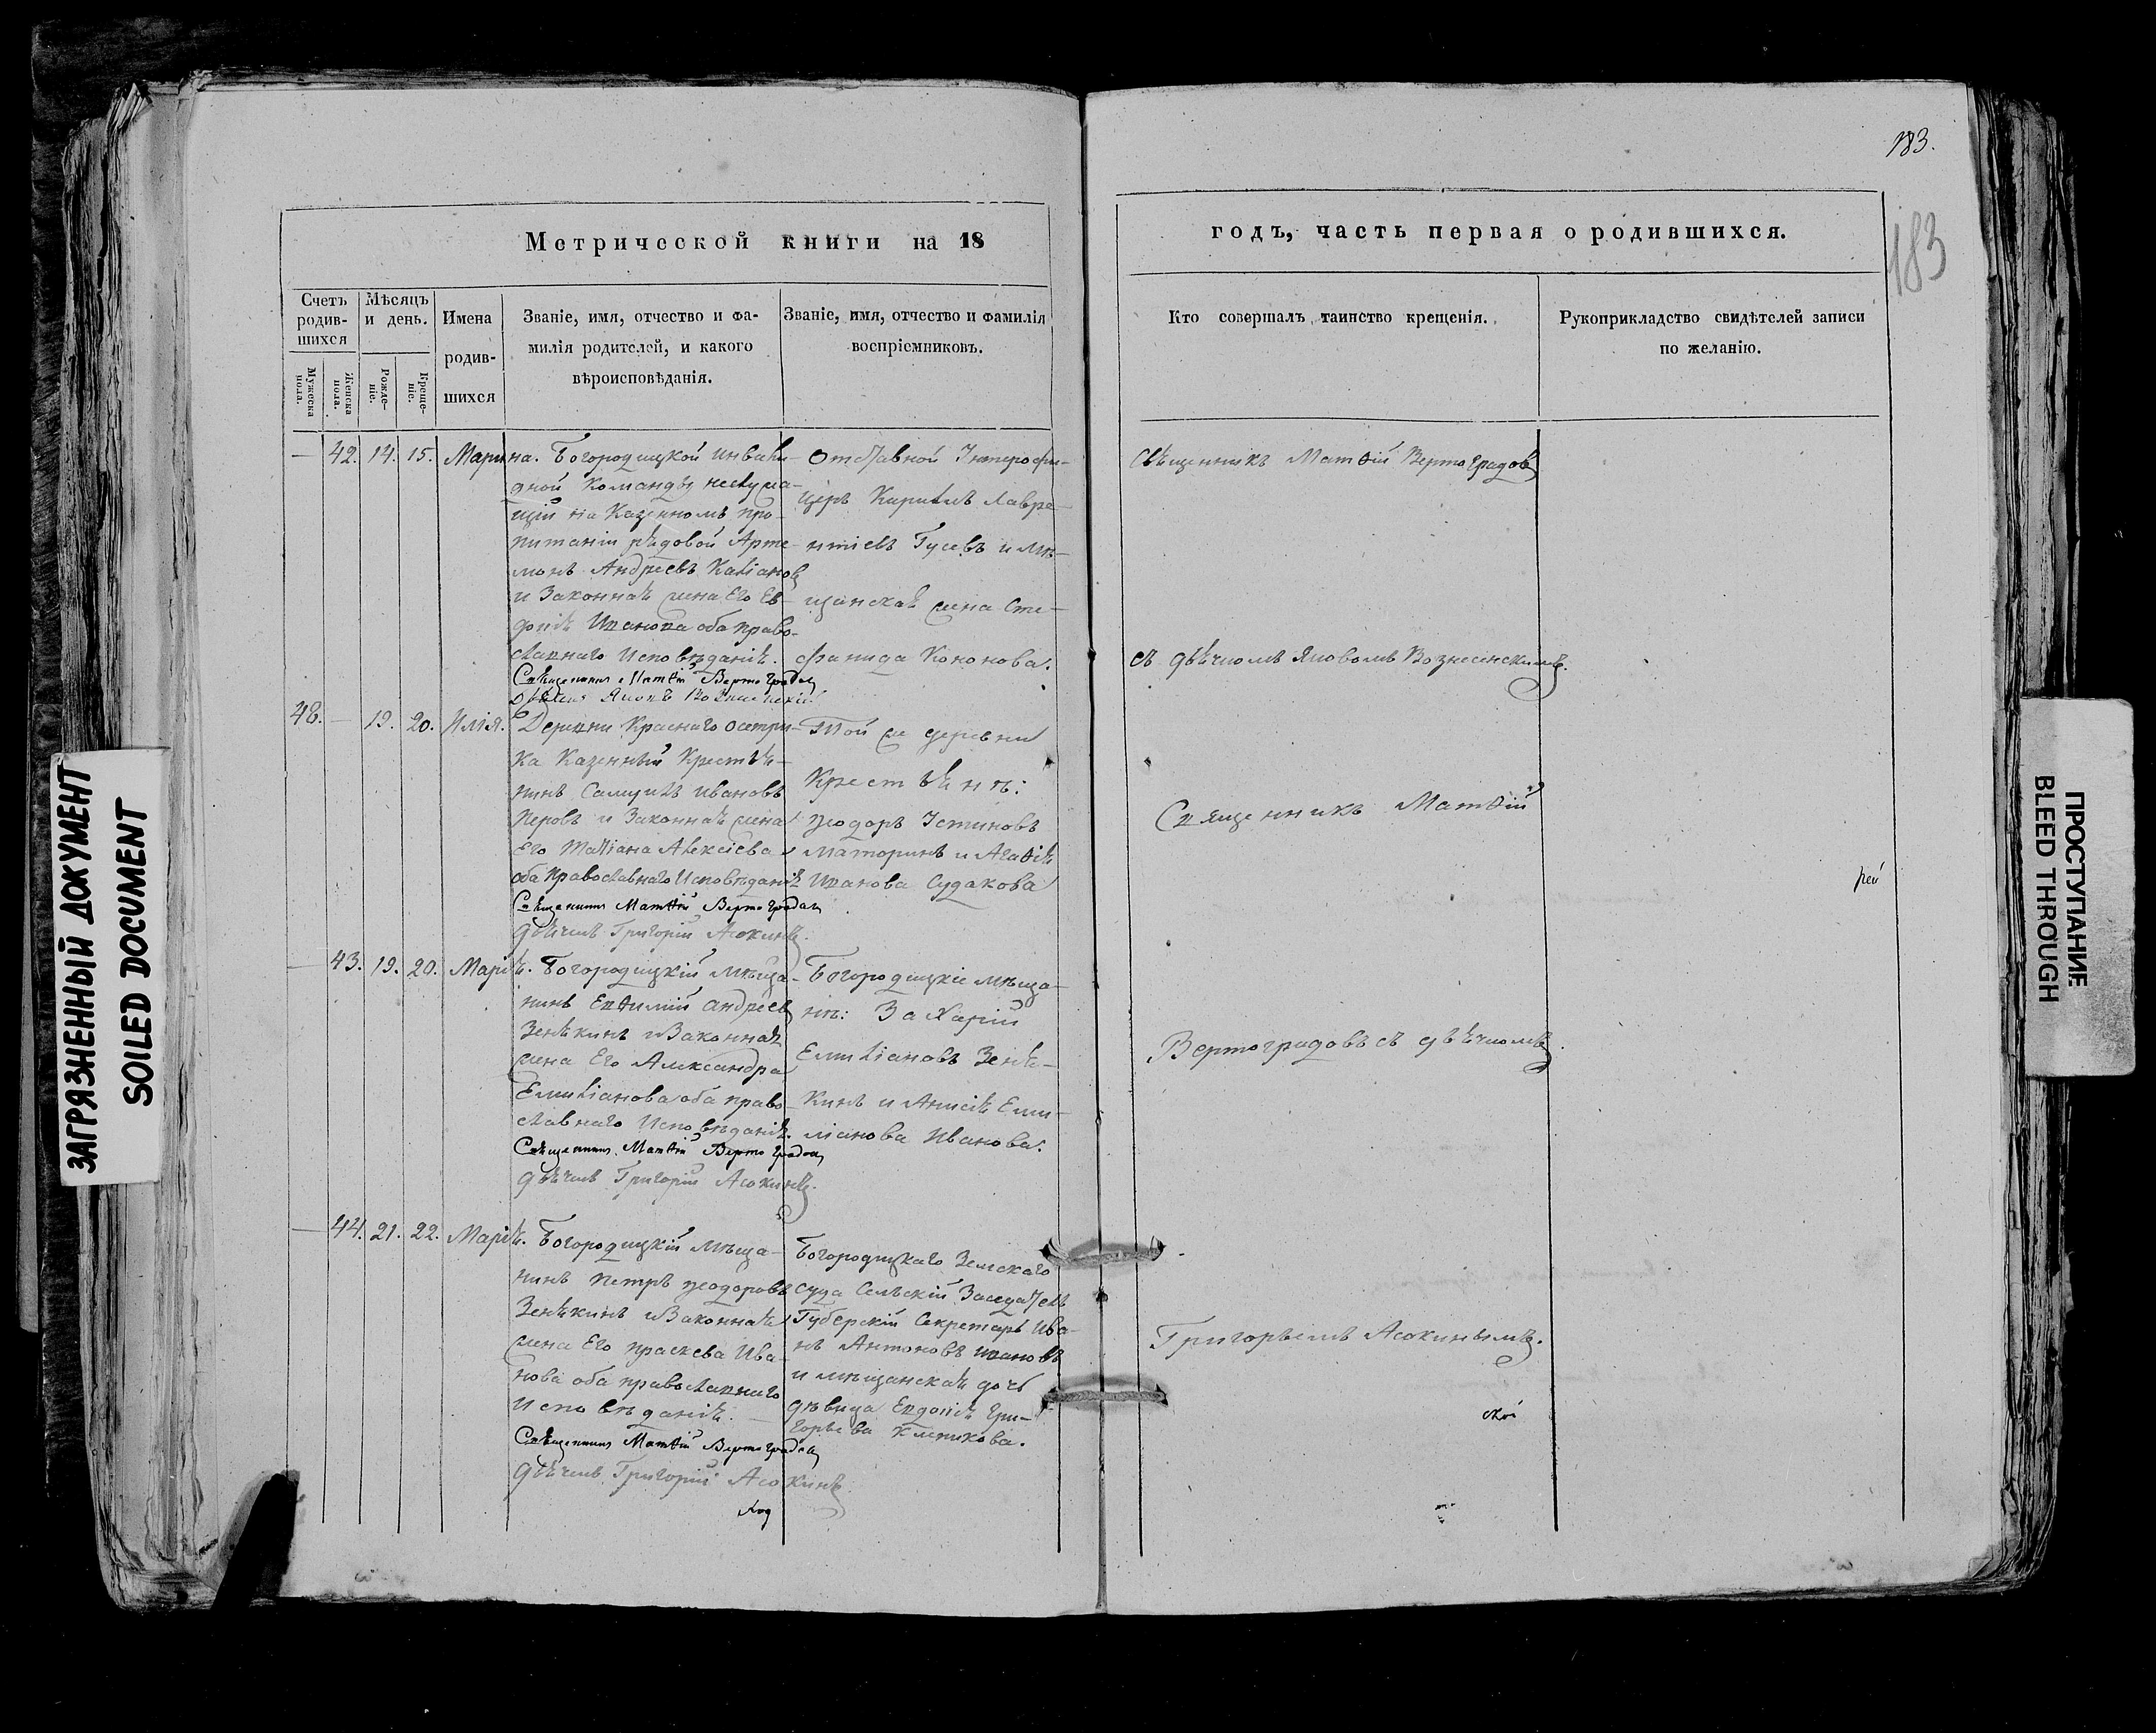 183.
183
Метрической книги на 18
годъ, часть первая о родившихся.
Счетъ родив-шихся
Мужеска пола.
Женска пола.
Мѣсяцъ и день.
Рожде-ніе.
Креще-ніе.
Имена
родив-
шихся
Званіе, имя, отчество и фа-
милія родителей, и какого
вѣроисповѣданія.
Званіе, имя, отчество и фамилія
воспріемниковъ.
Кто совершалъ таинство крещенія.
Рукоприкладство свидѣтелей записи
по желанію.
— 42. 14. 15. Марина. Богородицкой инвали-
дной Команды неслужа-
щій на Казенномъ про-
питаніи рядовой Арте-
монъ Андреевъ
и Законная жена Его Ев-
докія Иванова обa право-
славнаго Исповѣданія.
Священникъ Матѳій Вертоградовъ
Дьячокъ Яковъ Вознесенскій
Отставной Унтерофи-
церъ Кирилъ Лавре-
нтіевъ Гусевъ и мѣ-
щанская жена Сте-
фанида Кононова.
Священникъ Матѳій Вертоградовъ
съ дьячкомъ Яковомъ Вознесенскимъ.
48. — 19. 20. Илія. Деревни Краснаго осетри-
ка Казенный Крестья-
нинъ Самуилъ Ивановъ
и Законная жена
Его Татіана Алексіева
оба Православнаго Исповѣданія
Священникъ Матѳій Вертоградовъ
дьячокъ Григорій Асокинъ.
Той же деревни
Крестьянъ:
Ѳеодоръ Устиновъ
Маторинъ и Агаѳія
Иванова Судакова
Священникъ Матѳій
— 43. 19. 20. Марія. Богородицкій мѣща-
нинъ Евѳимій Андреевъ
Зенякинъ и Законная
жена Его Александра
Емиліанова оба право-
славнаго Исповѣданія.
Священникъ Матѳій Вертоградовъ
дьячокъ Григорій Асокинъ.
Богородицкіе мѣща-
нѣ: Захарій
Емиліановъ Зеня-
кинъ и Анисія Еми-
ліанова Иванова.
Вертоградовъ съ дьячкомъ
— 44. 21. 22. Марія. Богородицкій мѣща-
нинъ Петръ Ѳеодоровъ
Зенякинъ и Законная
жена Его Праскева Ива-
нова оба православнаго
Исповѣданія.
Священникъ Матѳій Вертоградовъ
дьячокъ Григорій Асокинъ
Богородицкаго Земскаго
суда Сельскій Заседатель
Губерскій Секретарь Ива-
нъ Антоновъ Ивановъ
и мѣщанская дочь
дѣвица Евдокія Гри-
горьева
Григорьемъ Асокинымъ.
рей
ской
ЗАГРЯЗНЕННЫЙ ДОКУМЕНТ
SOILED DOCUMENT
ПРОСТУПАНИЕ
BLEED THROUGH